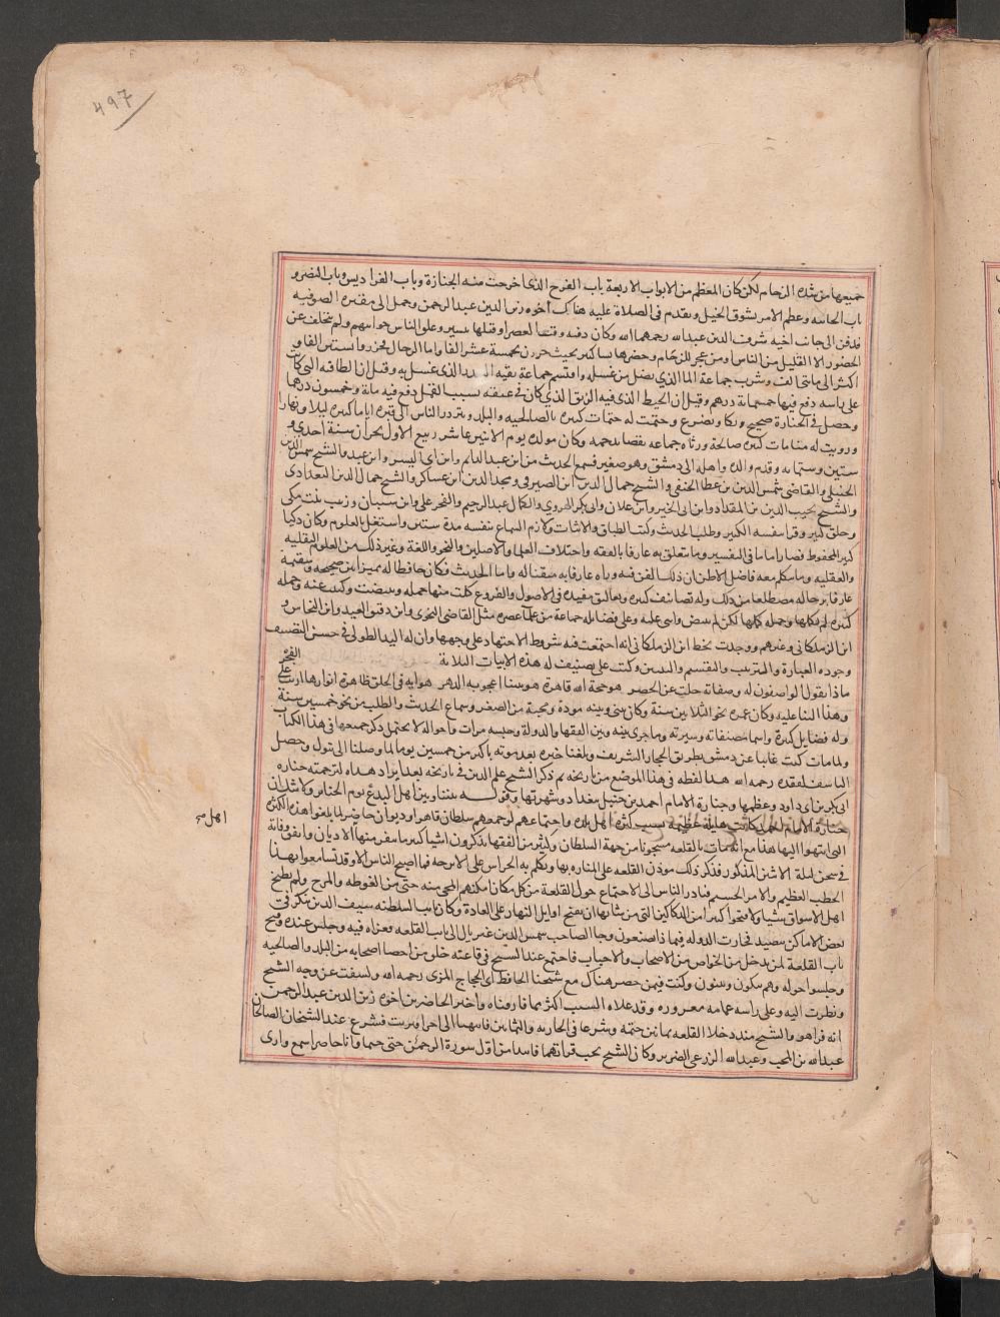 497
جميعها من شدة الزحام لكن كان المعظم من الابواب الاربعة باب الفرج الذى اخرجت منه الجنازة وباب الفراديس وباب النصر و
باب الجابيه وعظم الامر بسوق الخيل وتقدم فى الصلاة عليه هناك اخوه زين الدين عبد الرحمن وحمل الى مقبرة الصوفيه
فدفن الى جانب اخيه شرف الدين عبد الله رحمهما الله وكان دفنه وقت العصر او قبلها بيسير وغلق الناس حوانيتهم ولم يتخلف عن
الحضور الا القليل من الناس او من عجز للزحام وحضرها نساء كثير بحيث حزرن بخمسة عشر الفا واما الرجال فحزروا بستين الفا و
اكثر الى مائتى الف وشرب جماعة الماء الذى فضل من غسله واقتسم جماعة بقية السدر الذى غسل به وقيل ان الطاقيه التى كانت
على راسه دفع فيها خمسمائة درهم وقيل ان الخيط الذى فيه الزيبق الذى كان فى عنقه بسبب القمل دفع فيه مائة وخمسون درهما
وحصل فى الجنازة ضجيج وبكاء وتضرع وختمت له ختمات كثيره بالصالحيه والبلد وتردد الناس الى قبره اياما كثيره ليلا ونهارا
ورويت له منامات كثيره صالحة ورثاه جماعه بقصايد جمه وكان مولده يوم الاثنين عاشر ربيع الاول بحران سنة احدى و
ستين وستمايه وقدم والده واهله الى دمشق وهو صغير فسمع الحديث من ابن عبد الدايم وابن ابى اليسر وابن عبد والشيخ شمس الدين
الحنبلى والقاضى شمس الدين بن عطا الحنفى والشيخ جمال الدين ابن الصيرفى ومجد الدين ابن عساكر والشيخ جمال الدين البغدادى
والشيخ نجيب الدين بن المقداد وابن ابى الخير وابن علان وابى بكر الهروى والكمال عبد الرحيم والفخر على وابن شيبان وزينب بنت مكى
وخلق كثير وقرا بنفسه الكثير وطلب الحديث وكتب الطباق والاثبات ولازم السماع بنفسه مدة سنين واشتغل بالعلوم وكان ذكيا
كثير المحفوظ فصار اماما فى التفسير وما يتعلق به عارفا بالفقه واختلاف العلما والاصلين والنحو واللغة وغير ذلك من العلوم النقليه
والعقليه وما تكلم معه فاضل الا ظن ان ذلك الفن فنه وراه عارفا به متقنا له واما الحديث فكان حافظا له مميزا بين صحيحه وسقيمه
عارفا برجاله متضلعا من ذلك وله تصانيف كثيره وتعاليق مفيده فى الاصول والفروع كملت منها جمله وبيضت وكتبت عنه وجمله
كثيره لم يكملها وجمله كملها لكن لم تبيض واثنى عليه وعلى فضائله جماعة من علما عصره مثل القاضى الخوى وابن دقيق العيد وابن النحاس و
ابن الزملكانى وغيرهم ووجدت بخط ابن الزملكانى انه اجتمعت فيه شروط الاجتهاد على وجهها وان له اليد الطولى فى حسن التصنيف
وجوده العبارة والترتيب والتقسيم والتبيين وكتب على تصنيف له هذه الابيات الثلاثة
ماذا يقول الواصفون له وصفاته جلت عن الحصر هو حجة لله قاهرة هو بيننا اعجوبه الدهر هو ايه فى الخلق ظاهرة انوارها اربت على الفجر
وهذا الثنا عليه وكان عمره نحو الثلاثين سنة وكان بينى وبينه مودة وصحبة من الصغر وسماع الحديث والطلب من نحو خمسين سنة
وله فضايل كثيرة واسما مصنفاته وسيرته وما جرى بينه وبين الفقها والدولة وحبسه مرات واحواله لا يحتمل ذكر جميعها فى هذا الكتاب
ولما مات كنت غايبا عن دمشق بطريق الحجاز الشريف وبلغنا خبره بعد موته باكثر من خمسين يوما لما وصلنا الى تبوك وحصل
التاسف لفقده رحمه الله هذا لفظه فى هذا الموضع من تاريخه ثم ذكر الشيخ علم الدين فى تاريخه بعد ايراد هذه الترجمة جنازه
ابى بكر بن ابى داود وعظمها وجنازة الامام احمد بن حنبل ببغداد وشهرتها وقوله بيننا وبين اهل البدع يوم الجنايز ولا شك ان
جنازة الامام احمد كانت هايلة عظيمة بسبب كثرة اهل بلده واجتماعهم لو جمعهم سلطان قاهر او ديوان حاصر لما بلغوا هذه الكثرة
اهل
التى انتهوا اليها هذا مع انه مات بالقلعه مسجونا من جهة السلطان وكثير من الفقها يذكرون اشيا كثيره ما ينفر منها الاديان واتفق وفاته
فى سحر ليلة الاثنين المذكور فذكر ذلك موذن القلعه على المناره بها وتكلم به الحراس على الابرجه فما اصبح الناس الا وقد تسامعوا بهذا
الخطب العظيم والامر الجسيم فبادر الناس الى الاجتماع حول القلعة من كل مكان امكنهم المجى منه حتى من الغوطه والمرج ولم يطبخ
اهل الاسواق شيا ولا فتحوا كثيرا من الدكاكين التى من شانها ان تفتح اوايل النهار على العادة وكان نايب السلطنه سيف الدين تنكز فى
بعض الاماكن يتصيد فحارت الدوله فيما ذا يصنعون وجا الصاحب شمس الدين غبريال الى نايب القلعه وعزاه فيه وجلس عنده وفتح
باب القلعة لمن يدخل من الخواص من الاصحاب والاحباب فاجتمع عند الشيخ فى قاعته خلق من اخصا اصحابه من البلد والصالحيه
وجلسوا حوله وهم يبكون ويثنون وكنت فيمن حضر هناك مع شيخنا الحافظ ابى الحجاج المزى رحمه الله وكشفت عن وجه الشيخ
ونظرت اليه وعلى راسه عمامه مغروزه وقد علاه الشيب اكثر مما فارقناه واخبر الحاضرين اخوه زين الدين عبد الرحمن
انه قرا هو والشيخ منذ دخلا القلعه ثمانين ختمة وشرعا فى الحاديه والثمانين فانتهيا الى اخر اقتربت فشرع عند الشيخان الصالحان
عبد الله بن المحب وعبد الله الزرعى الضرير وكان الشيخ يحب قراتهما فابتدا من اول سورة الرحمن حتى ختما وانا حاضر اسمع وارى